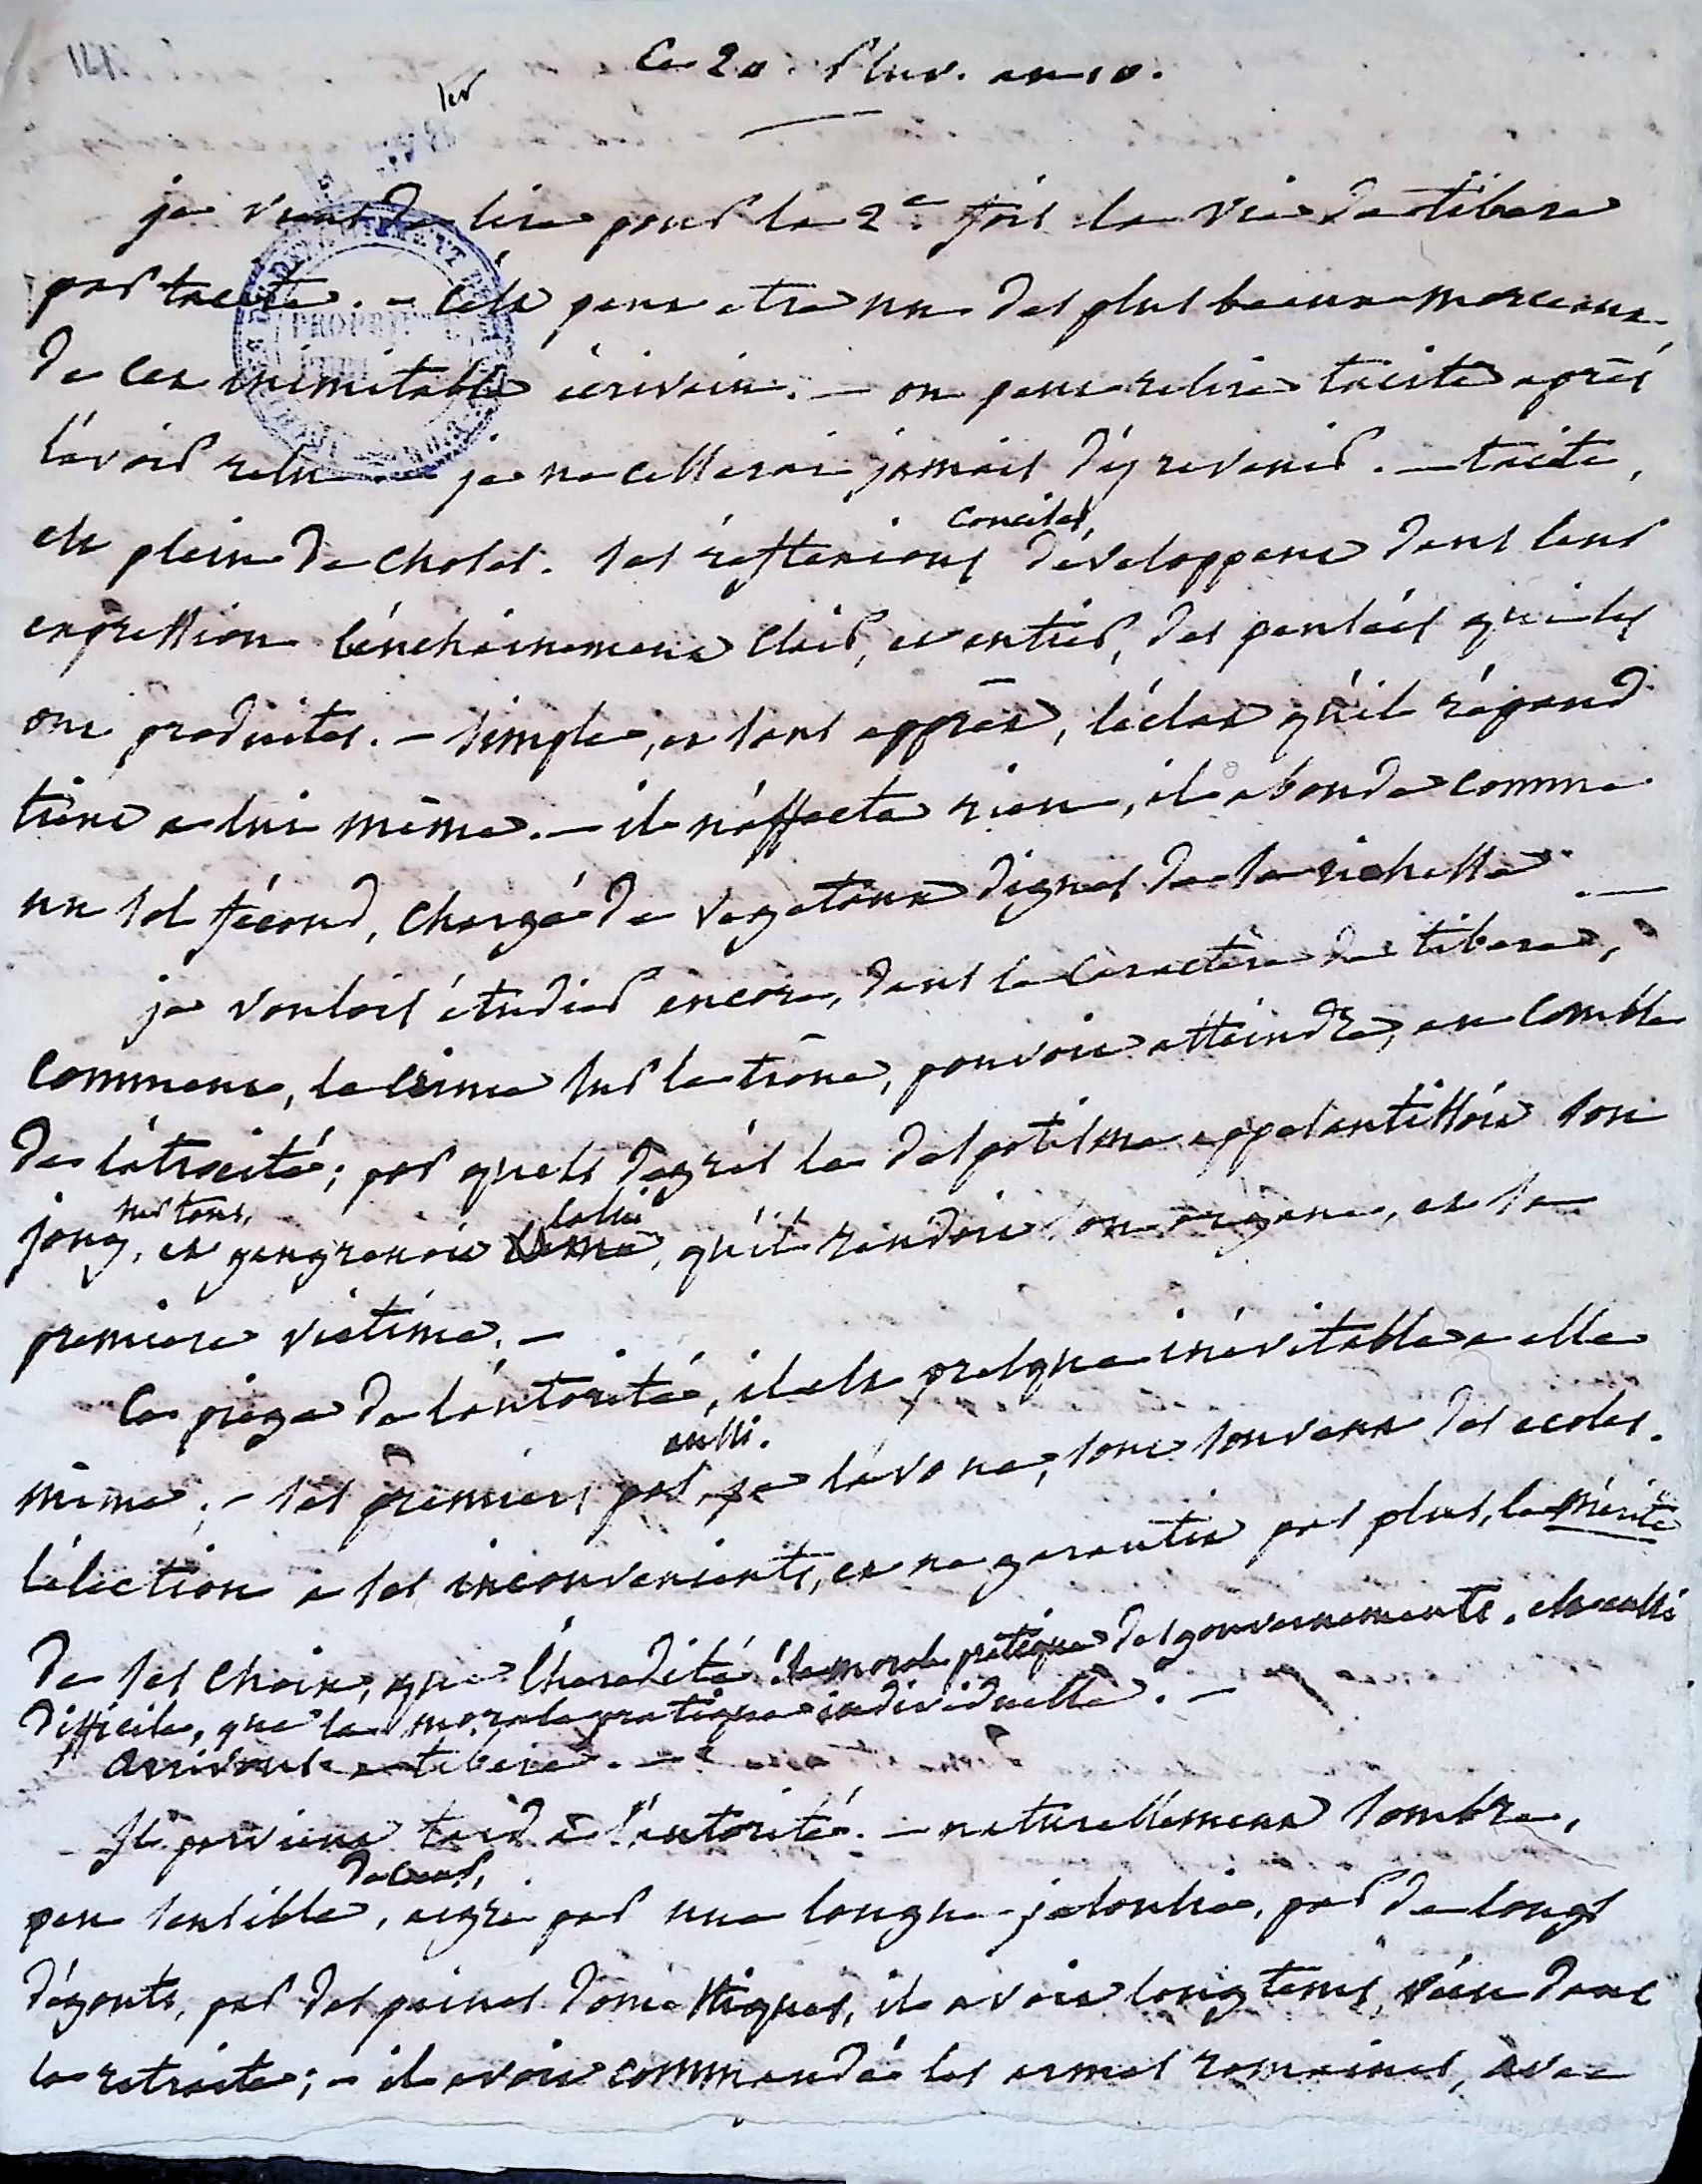 Ce 20 Pluv. an 10.
je viens de lire pour la 2e fois la vie de tibere
par tacite. - c'est peut etre un des plus beaux morceaux
de cet inimitable écrivain. - on peut relire tacite aprés
l'avoir relu - je ne cesserai jamais d'y revenir. - tacite,
est plein de choses. ses réflexions concises, développent dans leur
expression l'enchainement clair, et entier, des pensées qui les
ont produites. - simple, et sans apprêt, l'éclat qu'il répand
tient a lui même. - il n'affecte rien, il abonde comme
un sol fécond, chargé de vegetaux dignes de sa richesse -
je voulois étudier encore, dans le caractère de tibere,
comment, le crime sur le trône, pouvoit atteindre, au comble
de l'atrocité; par quels degrés le despotisme appesantissoit son
joug, sur tous, et gangrenoit celui, qu'il rendoit son organe, et sa
premiere victime. -
Ce piege de l'autorité, il est presque inévitable a elle
même; - ses premiers pas, je l'avoue, sont souvent des ecoles.
aussi.
l'élection a ses inconvenients, et ne garantit pas plus, le mérite
de ses choix, que l'héredité. la morale pratique des gouvernements, est aussi
difficile, que la morale pratique individuelle. -
arrivons a tibere. -
Il parvint tard à l'autorité. - naturellement sombre,
peu sensible, de cœur, aigri par une longue jalousie, par de longs
dégouts, par des peines domestiques, il avoit longtems vécu dans
la retraite; - il avoit commandé les armes romaines, avec